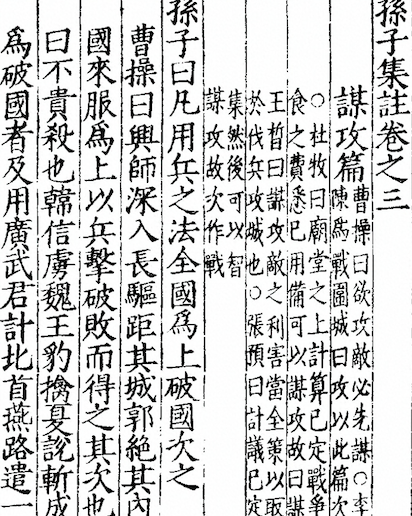 孫子集註卷之三
謀攻篇
曹操曰欲攻敵必先謀○李
陳爲戰圍城曰攻以此篇次
○杜牧曰廟堂之上計算已定戰爭
食之費悉已用備可以謀攻故曰謀
王晳曰謀攻敵之利害當全策以取
於伐兵攻城也○張預曰計議已定
集然後可以智
謀攻故次作戰
孫子曰凡用兵之法全國爲上破國次之
曹操曰興師深入長驅距其城郭絶其內
國來服爲上以兵擊破敗而得之其次也
曰不貴殺也韓信虜魏王豹擒夏說斬成
爲破國者及用廣武君計北首燕路遣一